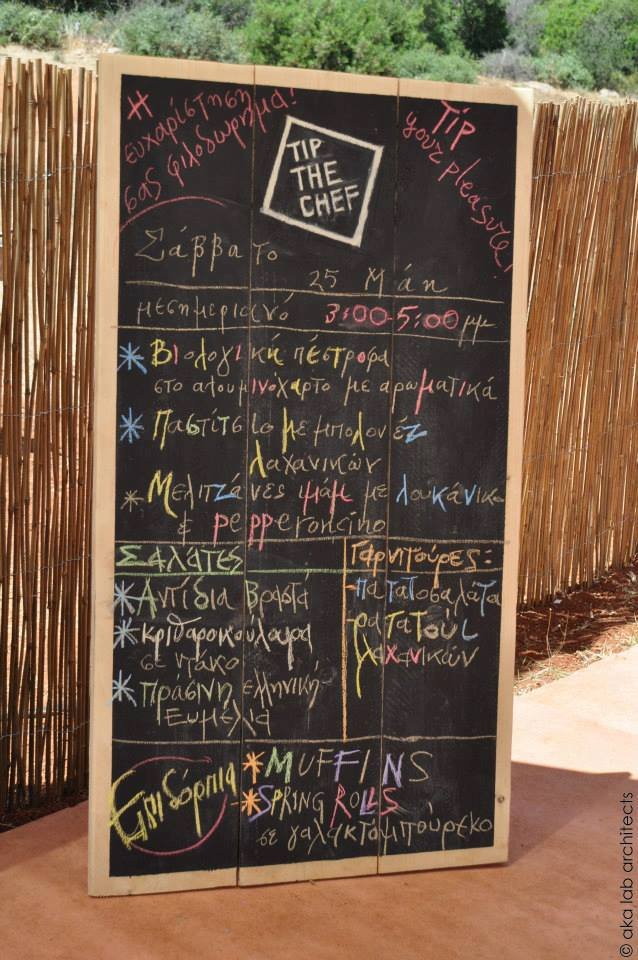 Η
ευχαρίστηση
σας φιλοδώρημα!
TIP
THE
CHEF
Tip
your pleasure!
Σάββατο
25 Μάη
μεσημεριανό 3:00-5:00 μμ
* Βιολογική πέστροφα
στο αλουμινόχαρτο με αρωματικά
* Παστίτσιο με μπολονέζ
λαχανικών
* Μελιτζάνες ιμάμ με λουκάνικο
& pepperoncino
ΣΑΛΑΤΕΣ
* Αντίδια βραστά
* κριθαροκούλουρα
σε ντάκο
* Πράσινη ελληνική
Ευμελία
Γαρνιτούρες:
- πατατοσαλάτα
- ρατατουι
λαχανικών
Επιδόρπια
* MUFFINS
* SPRING ROLLS
σε γαλακτομπούρεκο
© aka lab architects